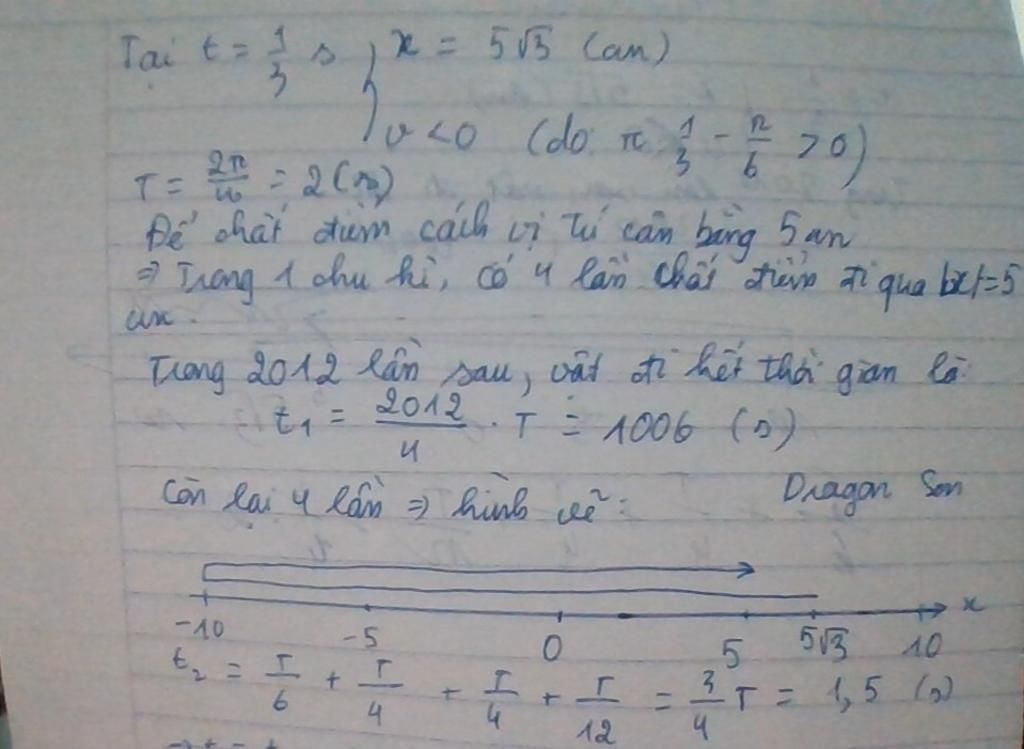 Tại t = 1/3 s } x = 5√3 (cm)
v < 0 (do π 1/3 - π/6 > 0)
T = 2π/ω = 2 (s)
Để chất điểm cách vị trí cân bằng 5 cm
⇒ Trong 1 chu kì, có 4 lần chất điểm đi qua |x| = 5
cm.
Trong 2012 lần sau, vật đi hết thời gian là:
t₁ = 2012/4 . T = 1006 (s)
Còn lại 4 lần ⇒ hình vẽ: Dragon Son
-10 -5 0 5 5√3 10 x
t₂ = T/6 + T/4 + T/4 + T/12 = 3/4 T = 1,5 (s)